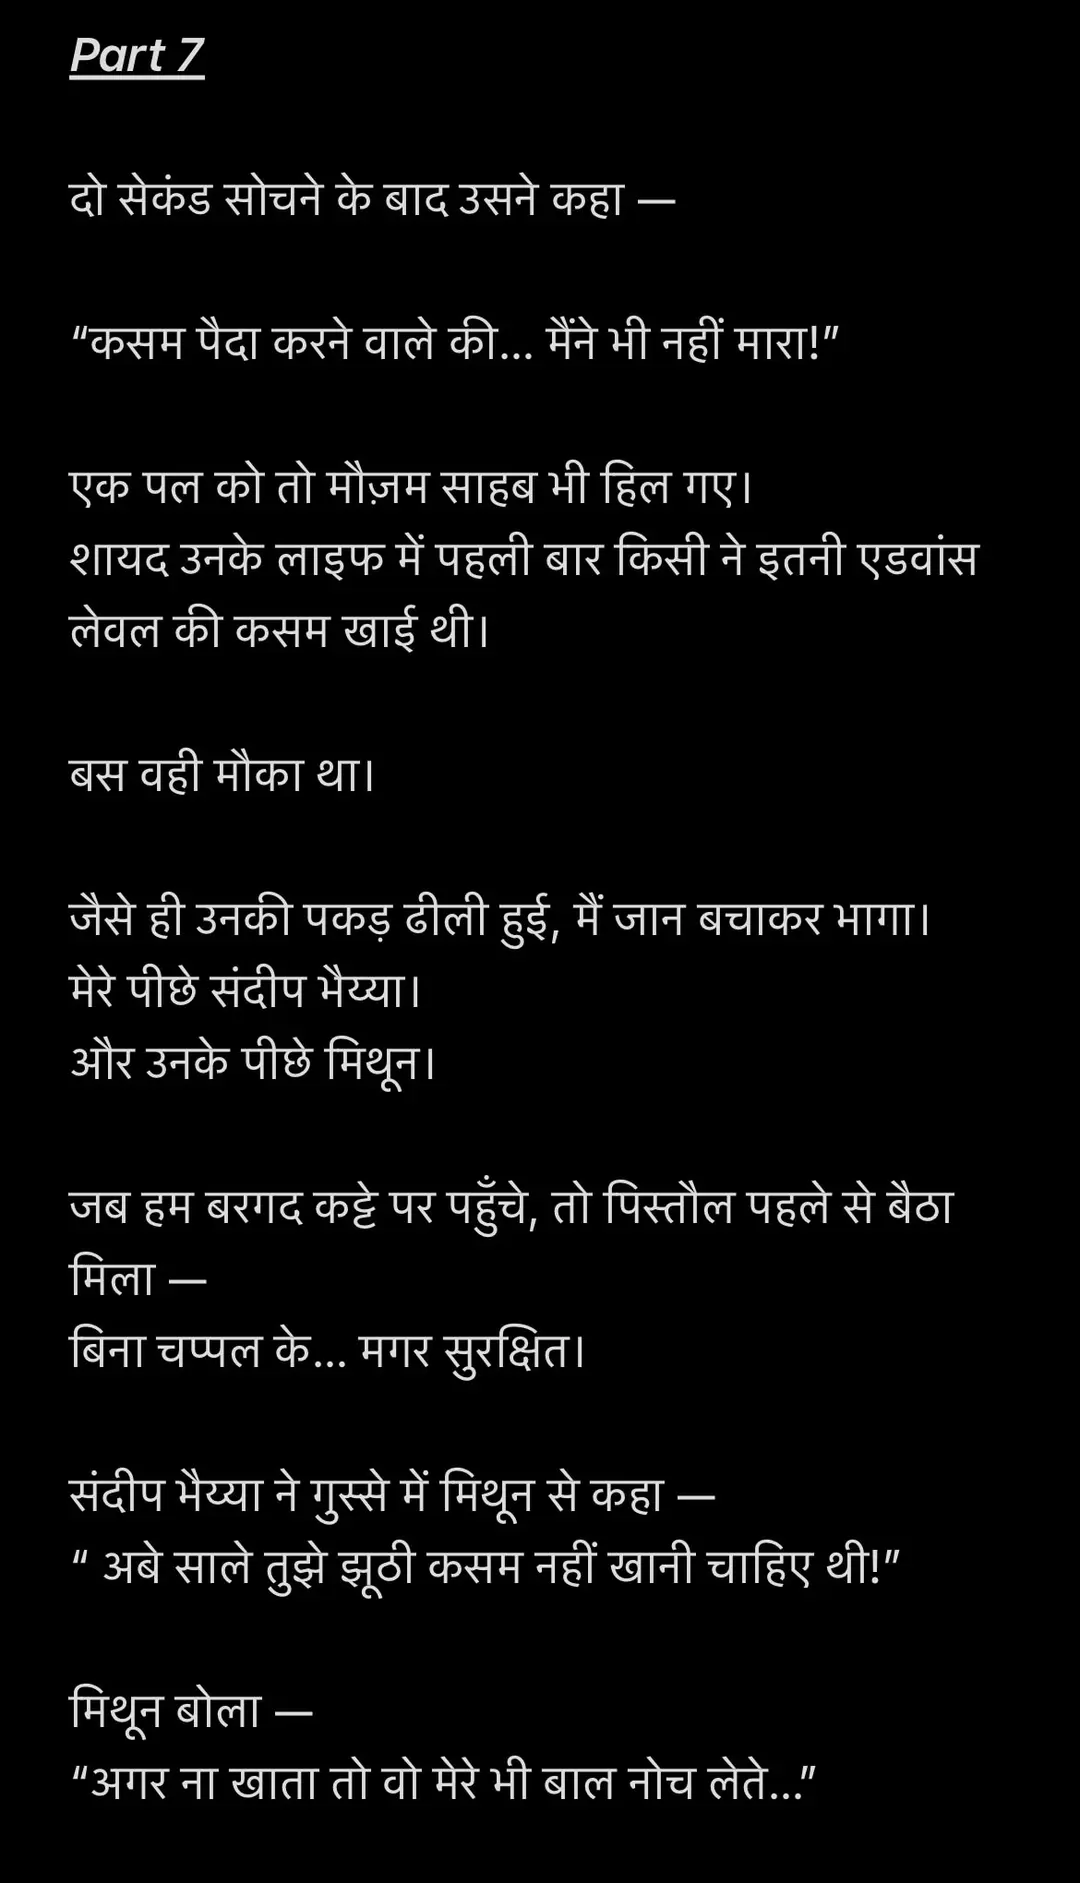 Part 7
दो सेकंड सोचने के बाद उसने कहा —
“कसम पैदा करने वाले की... मैंने भी नहीं मारा!”
एक पल को तो मौज़म साहब भी हिल गए।
शायद उनके लाइफ में पहली बार किसी ने इतनी एडवांस
लेवल की कसम खाई थी।
बस वही मौका था।
जैसे ही उनकी पकड़ ढीली हुई, मैं जान बचाकर भागा।
मेरे पीछे संदीप भैय्या।
और उनके पीछे मिथून।
जब हम बरगद कट्टे पर पहुँचे, तो पिस्तौल पहले से बैठा
मिला —
बिना चप्पल के... मगर सुरक्षित।
संदीप भैय्या ने गुस्से में मिथून से कहा —
“ अबे साले तुझे झूठी कसम नहीं खानी चाहिए थी!”
मिथून बोला —
“अगर ना खाता तो वो मेरे भी बाल नोच लेते...”